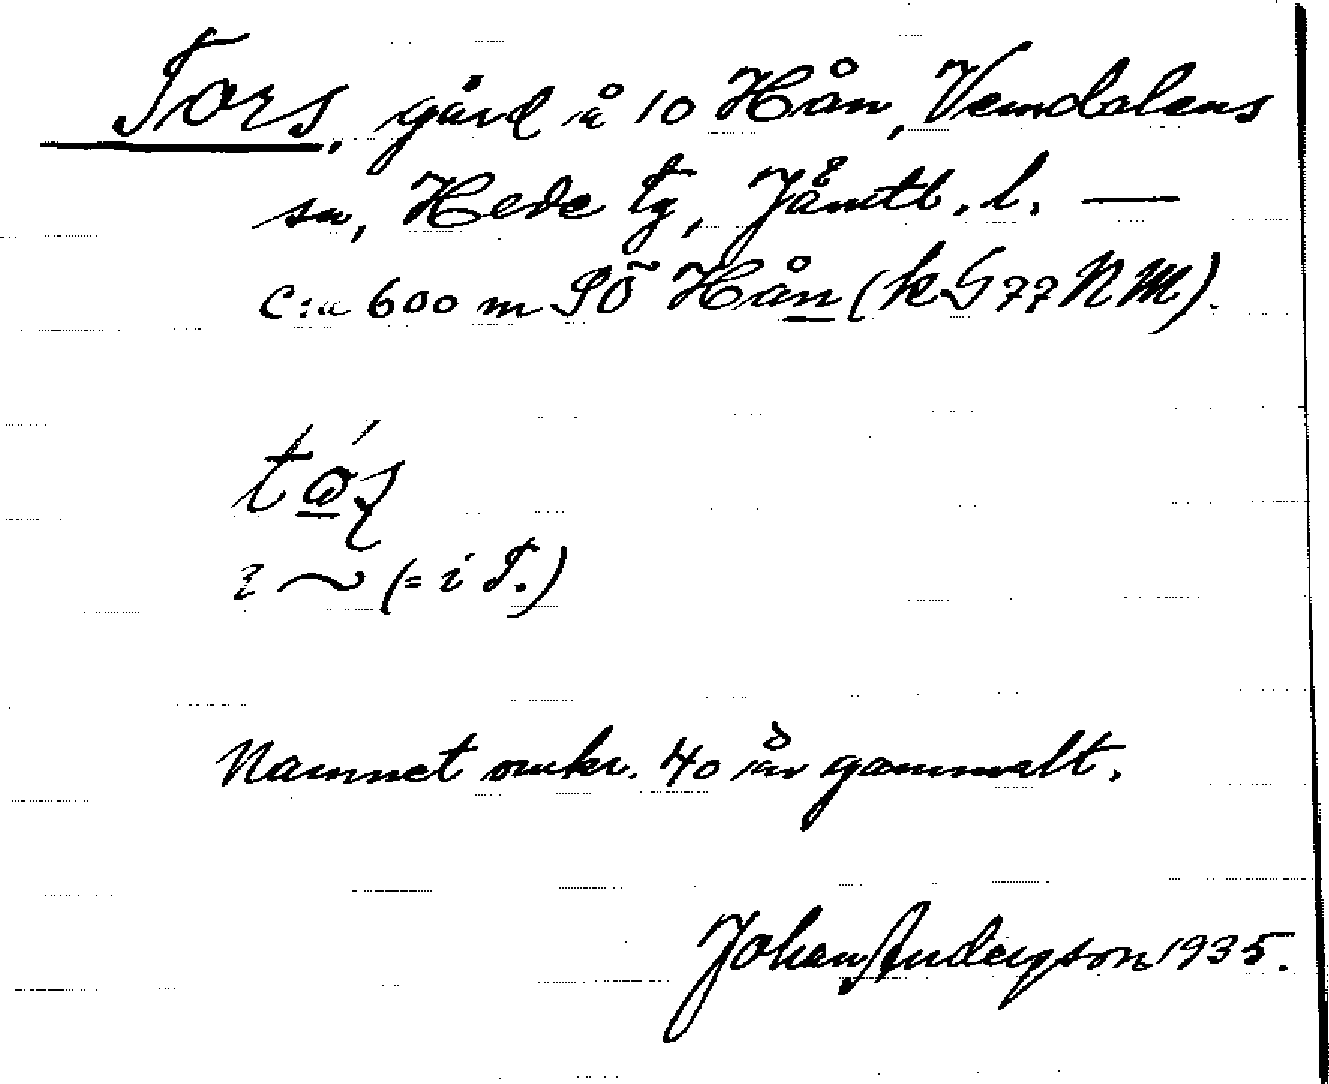 Tors, gård å 10 Hån, Vemdalens
sn, Hede tg, Jämtl. l. —
c:a 600 m SÖ Hån (k G 77 NM).
i ~ (= i T.)
Namnet omkr. 40 år gammalt.
Johan Anderson 1935.